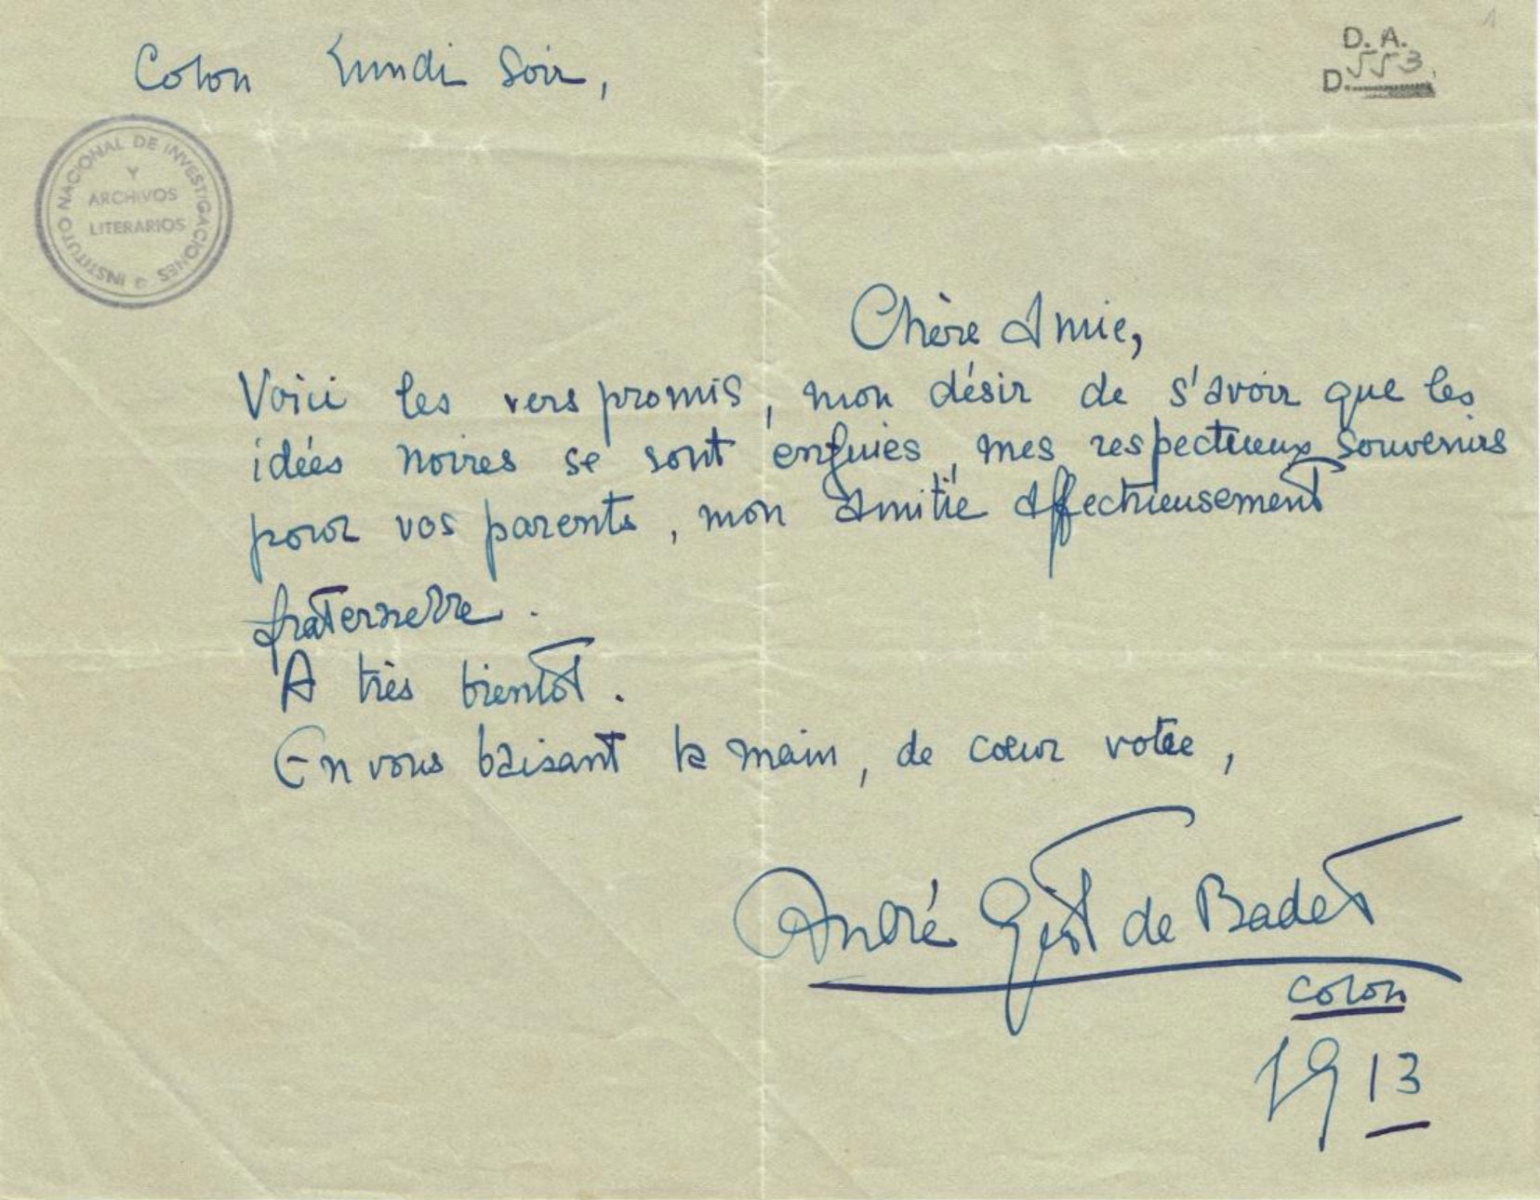 Colon Lundi Soir,
D. A.
D. 553.
1
INSTITUTO NACIONAL DE INVESTIGACIONES
Y
ARCHIVOS
LITERARIOS
Chère Amie,
Voici les vers promis, mon désir de s'avoir que les
idées noires se sont enfuies, mes respectueux souvenirs
pour vos parents, mon amitié affectueusement
fraternelle.
A très bientôt.
En vous baisant la main, de coeur votre,
André Gist de Badet
Colon
1913